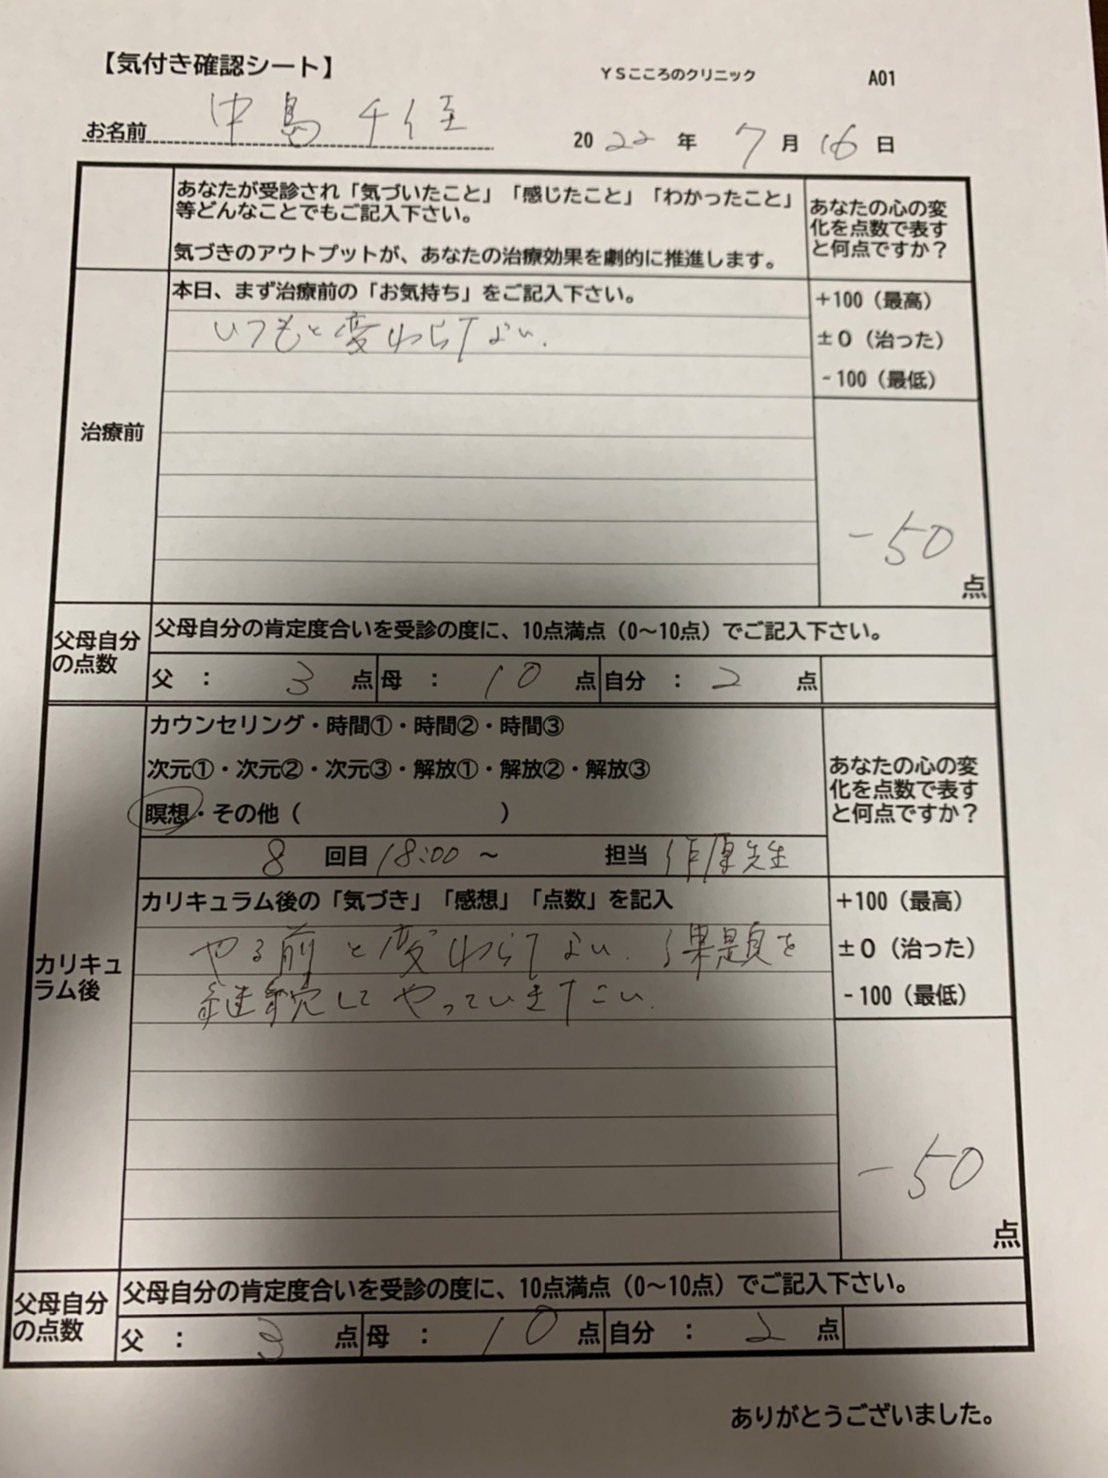 【気付き確認シート】 ＹＳこころのクリニック A01
お名前 中島 千佳 2022年 7月16日
あなたが受診され「気づいたこと」「感じたこと」「わかったこと」
等どんなことでもご記入下さい。
気づきのアウトプットが、あなたの治療効果を劇的に推進します。
あなたの心の変
化を点数で表す
と何点ですか？
治療前
本日、まず治療前の「お気持ち」をご記入下さい。
いつもと変わらない.
+100（最高）
±0（治った）
-100（最低）
-50
点
父母自分
の点数
父母自分の肯定度合いを受診の度に、10点満点（0～10点）でご記入下さい。
父 ： 3 点 母 ： 10 点 自分 ： 2 点
カリキュ
ラム後
カウンセリング・時間①・時間②・時間③
次元①・次元②・次元③・解放①・解放②・解放③
瞑想・その他（ ）
あなたの心の変
化を点数で表す
と何点ですか？
8 回目 18:00 ～ 担当 原先生
カリキュラム後の「気づき」「感想」「点数」を記入
やる前と変わらない. 課題を
継続してやっていきたい.
+100（最高）
±0（治った）
-100（最低）
-50
点
父母自分
の点数
父母自分の肯定度合いを受診の度に、10点満点（0～10点）でご記入下さい。
父 ： 3 点 母 ： 10 点 自分 ： 2 点
ありがとうございました。